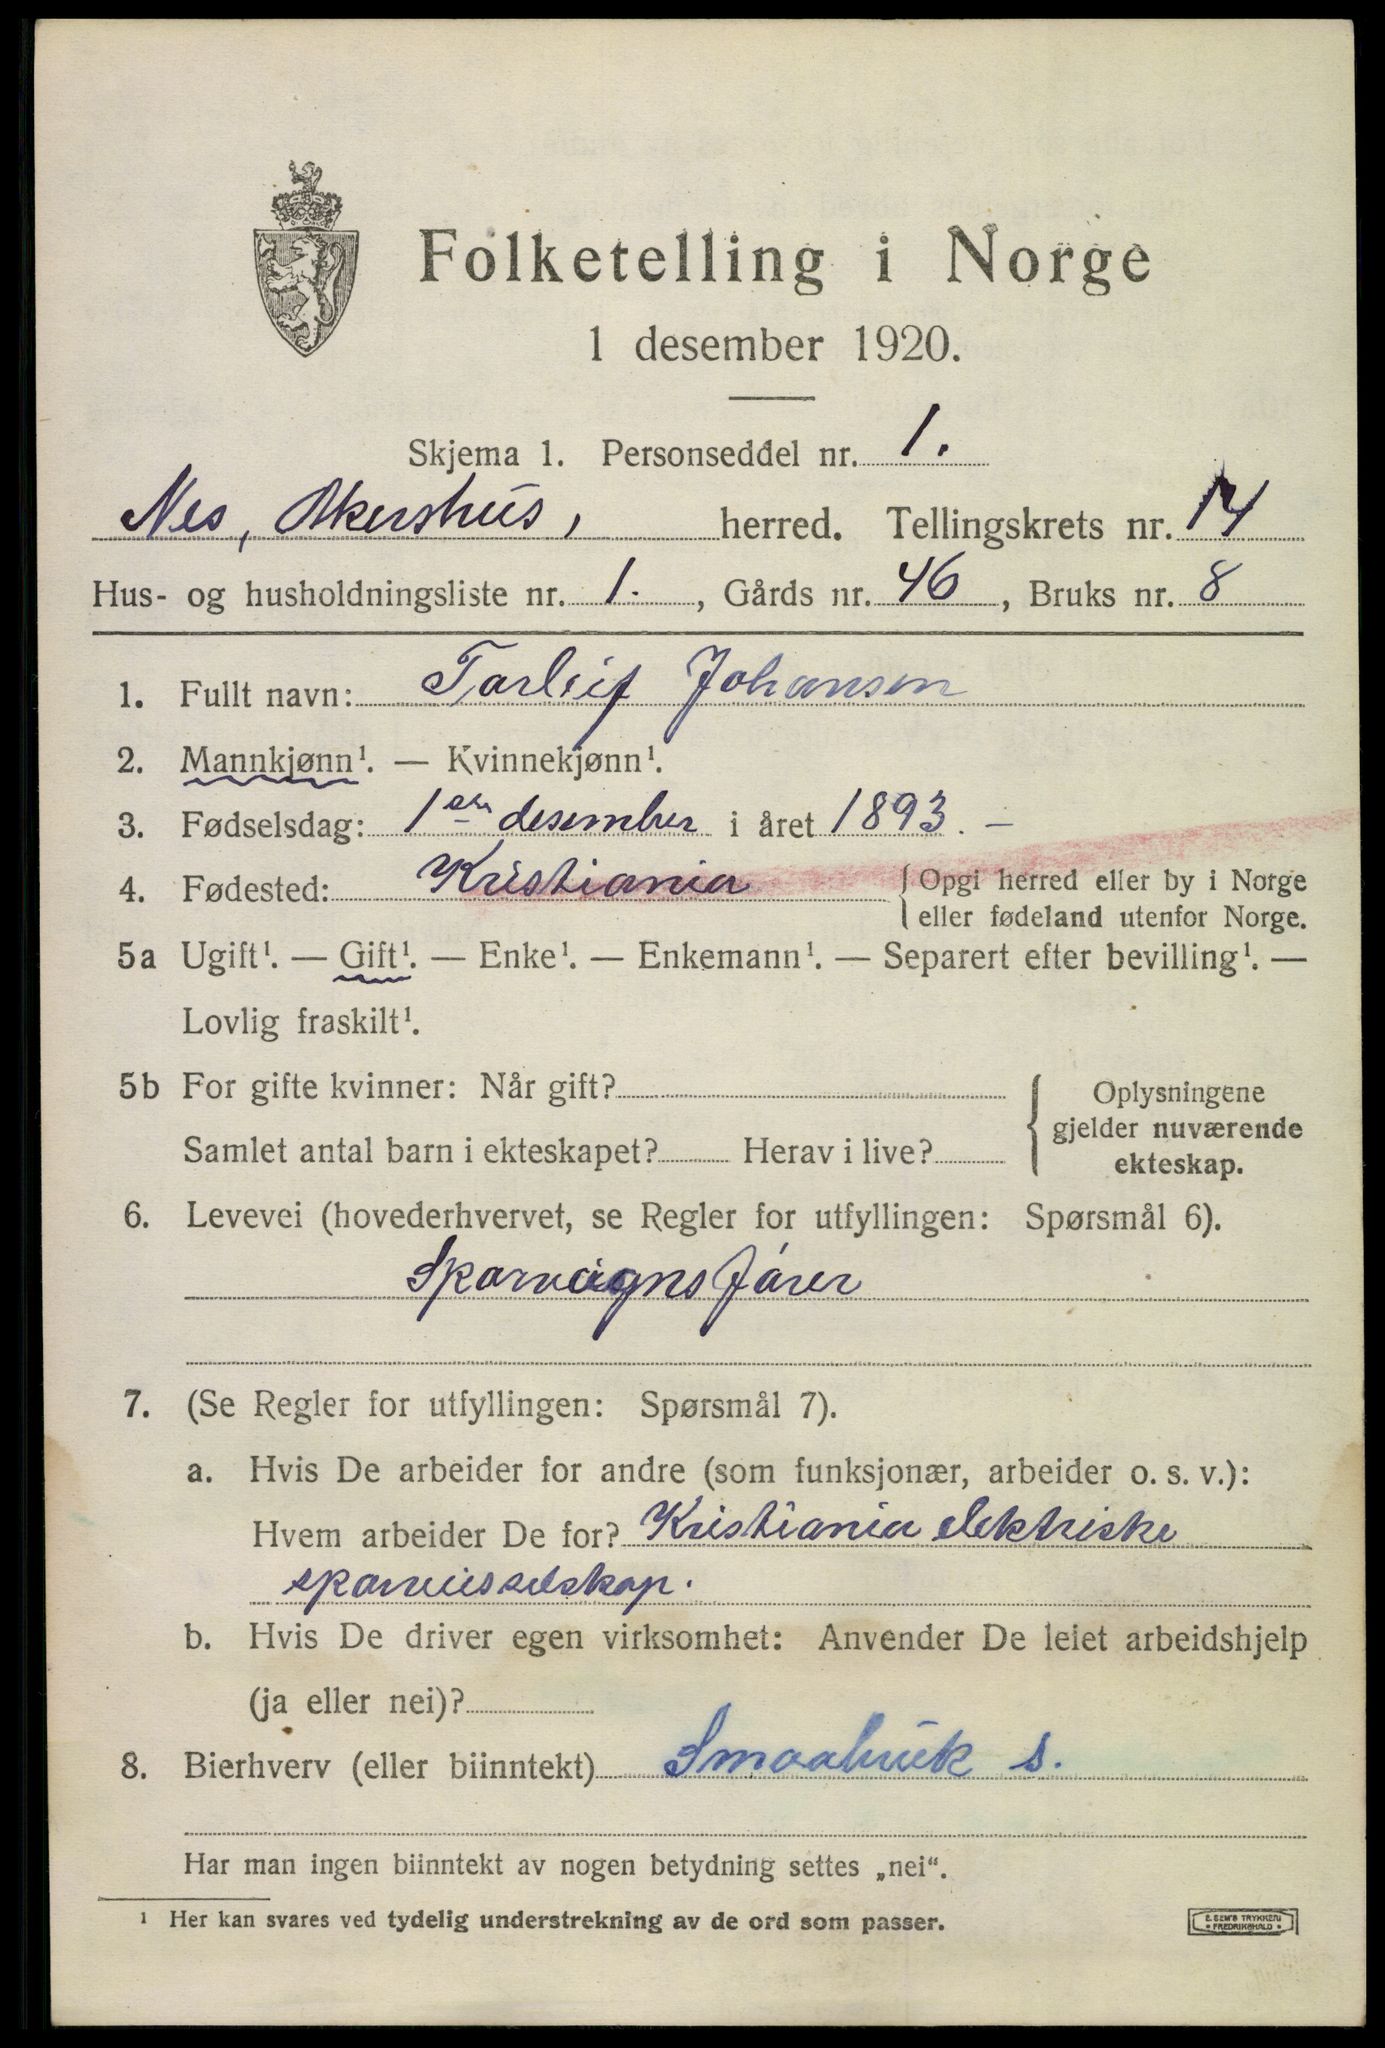 Folketelling i Norge
1 desember 1920.
Skjema 1. Personseddel nr. 1.
Nes, Akershus, herred. Tellingskrets nr. 14
Hus- og husholdningsliste nr. 1. , Gårds nr. 46 , Bruks nr. 8
1. Fullt navn: Torleif Johansen
2. Mannkjønn¹. — Kvinnekjønn¹.
3. Fødselsdag: 1ste desember i året 1893. –
4. Fødested: Kristiania { Opgi herred eller by i Norge
eller fødeland utenfor Norge.
5a Ugift¹. — Gift¹. — Enke¹. — Enkemann¹. — Separert efter bevilling¹. —
Lovlig fraskilt¹.
5b For gifte kvinner: Når gift? { Oplysningene
gjelder nuværende
Samlet antal barn i ekteskapet? Herav i live? ekteskap.
6. Levevei (hovederhvervet, se Regler for utfyllingen: Spørsmål 6).
Sporvognsfører
7. (Se Regler for utfyllingen: Spørsmål 7).
a. Hvis De arbeider for andre (som funksjonær, arbeider o. s. v.):
Hvem arbeider De for? Kristiania elektriske
sporveisselskap.
b. Hvis De driver egen virksomhet: Anvender De leiet arbeidshjelp
(ja eller nei)?
8. Bierhverv (eller biinntekt) Smaabruk s.
Har man ingen biinntekt av nogen betydning settes „nei“.
¹ Her kan svares ved tydelig understrekning av de ord som passer.
E. SEM'S TRYKKERI
• FREDRIKSHALD •